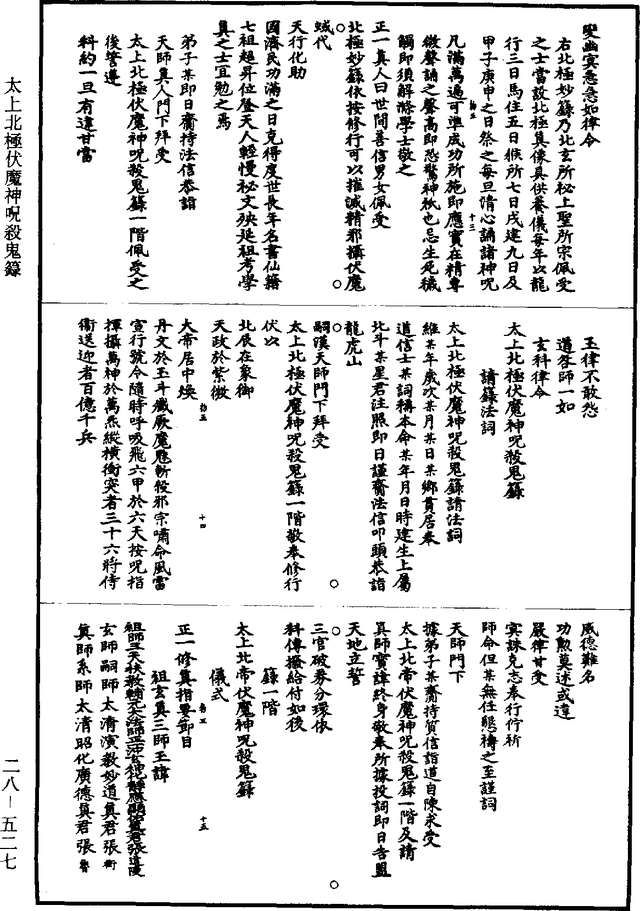 變幽冥急急如律令
右北極妙籙乃北玄所祕上聖所宗佩受
之士當設北極真像具供養儀每年以龍
行三日馬住五日猴所七日戌建九日及
甲子庚申之日祭之每旦清心誦諸神呪
凡滿萬遍可準成功所施即應實在精專
十三
微聲誦之聲高即恐驚神祇也忌生死穢
觸即須解滌學士敬之
正一真人曰世間善信男女佩受
北極妙籙依按修行可以摧滅精邪攝伏魔
蜮代
天行化助
國濟民功滿之日克得度世長年名書仙籍
七祖超昇位登天人輕慢祕文殃延祖考學
真之士宜勉之焉
弟子某即日齋持法信恭詣
天師真人門下拜受
太上北極伏魔神呪殺鬼籙一階佩受之
後誓遵
科約一旦有違甘當
玉律不敢怨
道咎師一如
玄科律令
太上北極伏魔神呪殺鬼籙
請籙法詞
太上北極伏魔神呪殺鬼籙請法詞
維某年歲次某月某日某鄉貫居奉
道信士某詞稱本命某年月日時建生上屬
北斗某星君注照即日謹齋法信叩頭恭詣
龍虎山
嗣漢天師門下拜受
太上北極伏魔神呪殺鬼籙一階敬奉修行
伏以
北辰在象御
天政於紫微
大帝居中煥
十四
丹文於玉斗殲厥魔魅斬殺邪宗嘯命風雷
宣行號令隨時呼吸飛六甲於六天按呪指
揮攝萬神於萬炁縱橫衝突者三十六將侍
衛送迎者百億千兵
威德難名
功勲莫述或違
嚴律甘受
冥誅克志奉行佇祈
師命但某無任懇禱之至謹詞
天師門下
據弟子某齋持質信詣道自陳求受
太上北帝伏魔神呪殺鬼籙一階及請
真師寶諱終身敬奉所據投詞即日告盟
天地立誓
三官破券分環依
科傳擬給付如後
籙一階
太上北帝伏魔神呪殺鬼籙
儀式
十五
正一修真指要節目
祖玄真三師玉諱
玄師嗣師太清演教妙道真君張衡
真師系師太清昭化廣德真君張魯
太上北極伏魔神呪殺鬼籙
二八－五二七